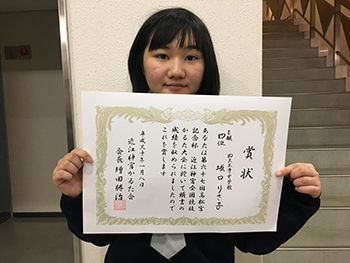 賞状
E級
四位
四天王寺中学校
坂口りさ子
あなたは第六十七回高松宮
記念杯近江神宮全国競技
かるた大会に於いて頭書の
成績を収められましたので
これを賞します
平成三十年一月八日
近江神宮かるた会
会長 増田勝治